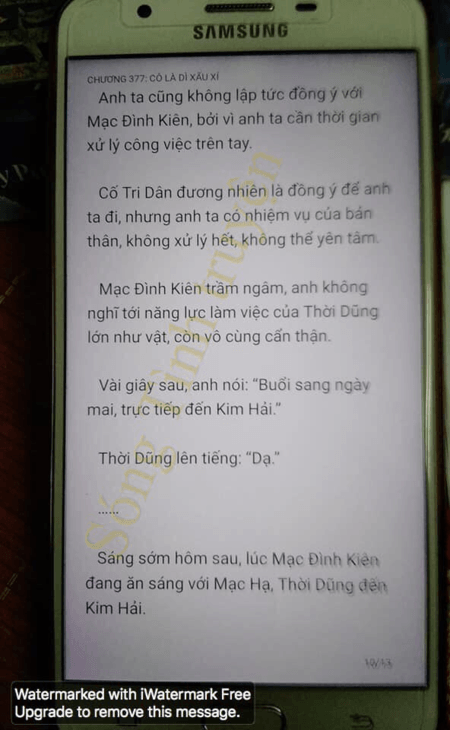 SAMSUNG
CHƯƠNG 377: CÔ LÀ DÌ XẤU XÍ
Anh ta cũng không lập tức đồng ý với
Mạc Đình Kiên, bởi vì anh ta cần thời gian
xử lý công việc trên tay.
Cố Tri Dân đương nhiên là đồng ý để anh
ta đi, nhưng anh ta có nhiệm vụ của bản
thân, không xử lý hết, không thể yên tâm.
Mạc Đình Kiên trầm ngâm, anh không
nghĩ tới năng lực làm việc của Thời Dũng
lớn như vật, còn vô cùng cẩn thận.
Vài giây sau, anh nói: "Buổi sang ngày
mai, trực tiếp đến Kim Hải."
Thời Dũng lên tiếng: "Dạ."
......
Sáng sớm hôm sau, lúc Mạc Đình Kiên
đang ăn sáng với Mạc Hạ, Thời Dũng đến
Kim Hải.
10/13
Sóng Tình truyện
Watermarked with iWatermark Free
Upgrade to remove this message.